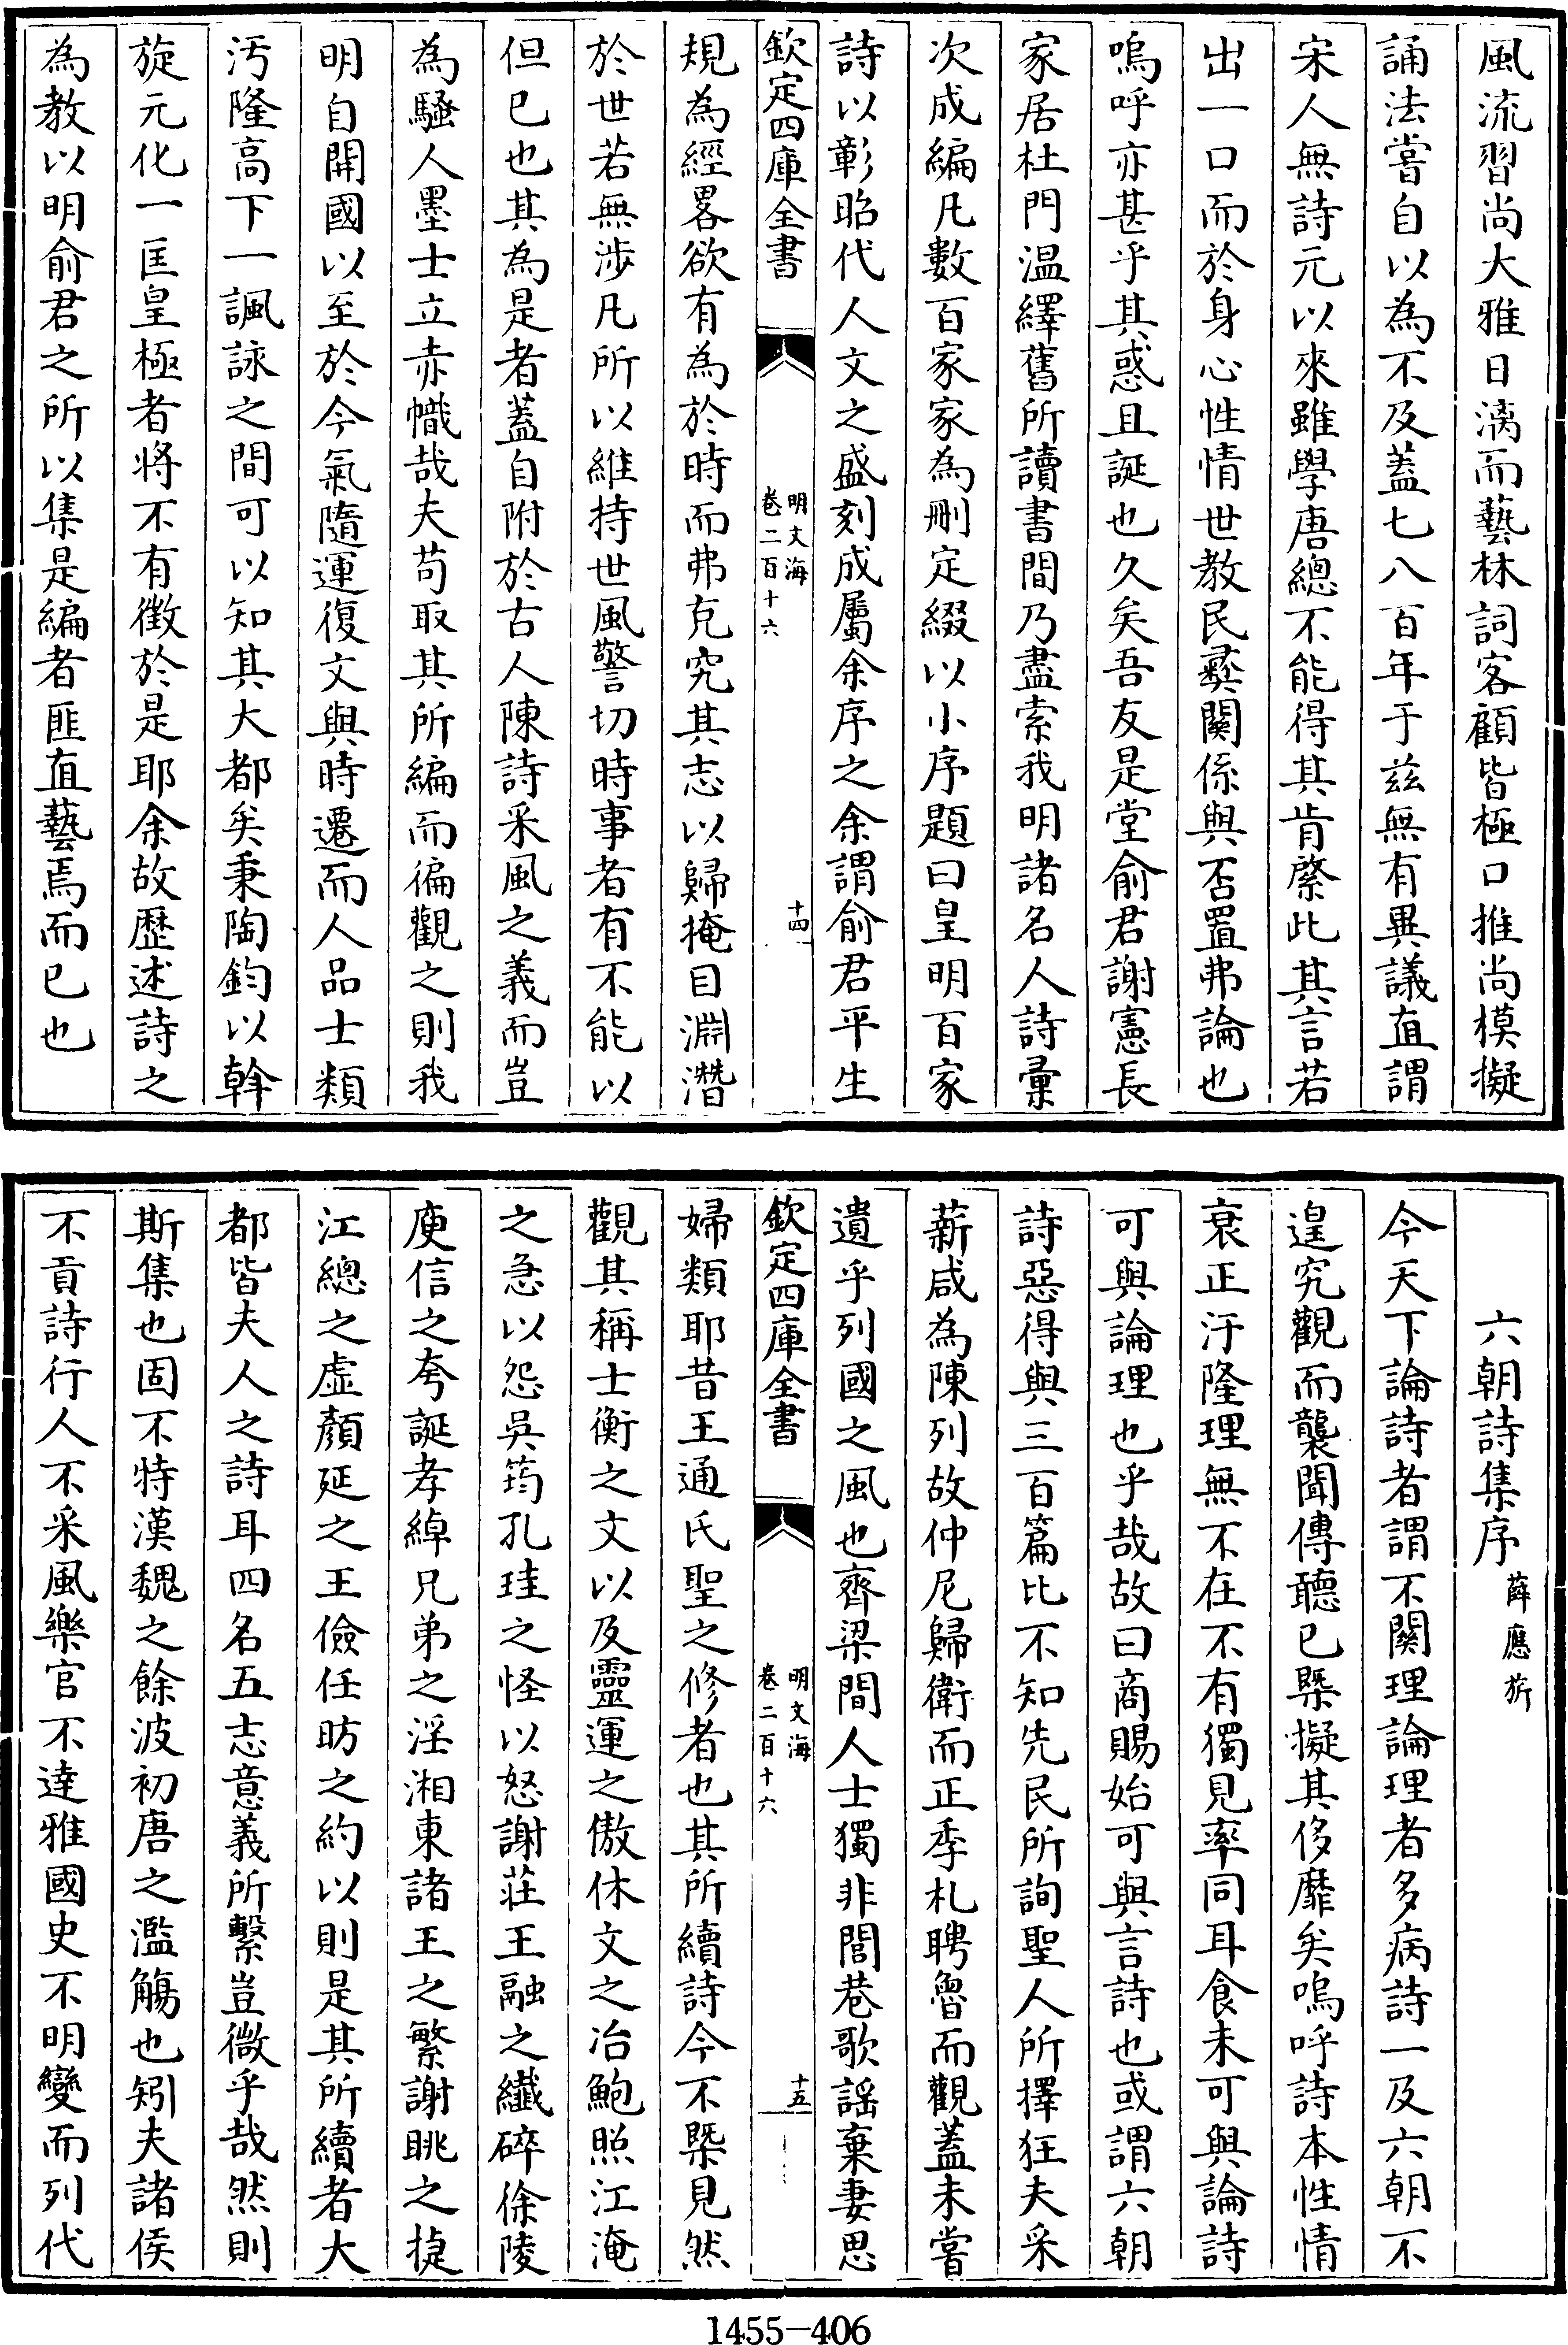 風流習尚大雅日漓而藝林詞客顧皆極口推尚模擬
誦法嘗自以為不及蓋七八百年于兹無有異議直謂
宋人無詩元以來雖學唐總不能得其肯綮此其言若
出一口而於身心性情世教民彞關係與否置弗論也
嗚呼亦甚乎其惑且誕也久矣吾友是堂俞君謝憲長
家居杜門温繹舊所讀書間乃盡索我明諸名人詩彚
次成編凡數百家家為刪定綴以小序題曰皇明百家
詩以彰昭代人文之盛刻成屬余序之余謂俞君平生
欽定四庫全書
明文海
卷二百十六
十四
規為經畧欲有為於時而弗克究其志以歸掩目淵潛
於世若無涉凡所以維持世風警切時事者有不能以
但已也其為是者蓋自附於古人陳詩采風之義而豈
為騷人墨士立赤幟哉夫苟取其所編而徧觀之則我
明自開國以至於今氣隨運復文與時遷而人品士類
汚隆高下一諷詠之間可以知其大都矣秉陶鈞以斡
旋元化一匡皇極者將不有徵於是耶余故歷述詩之
為教以明俞君之所以集是編者匪直藝焉而已也
六朝詩集序 薛應旂
今天下論詩者謂不關理論理者多病詩一及六朝不
遑究觀而襲聞傳聽已槩擬其侈靡矣嗚呼詩本性情
衰正汙隆理無不在不有獨見率同耳食未可與論詩
可與論理也乎哉故曰商賜始可與言詩也或謂六朝
詩惡得與三百篇比不知先民所詢聖人所擇狂夫采
薪咸為陳列故仲尼歸衛而正季札聘魯而觀蓋未嘗
遺乎列國之風也齊梁間人士獨非閭巷歌謡棄妻思
欽定四庫全書
明文海
卷二百十六
十五
婦類耶昔王通氏聖之修者也其所續詩今不槩見然
觀其稱士衡之文以及靈運之傲休文之冶鮑照江淹
之急以怨吳筠孔珪之怪以怒謝莊王融之纎碎徐陵
庾信之夸誕孝綽兄弟之淫湘東諸王之繁謝朓之捷
江總之虛顏延之王儉任昉之約以則是其所續者大
都皆夫人之詩耳四名五志意義所繫豈微乎哉然則
斯集也固不特漢魏之餘波初唐之濫觴也矧夫諸侯
不貢詩行人不采風樂官不達雅國史不明變而列代
1455-406